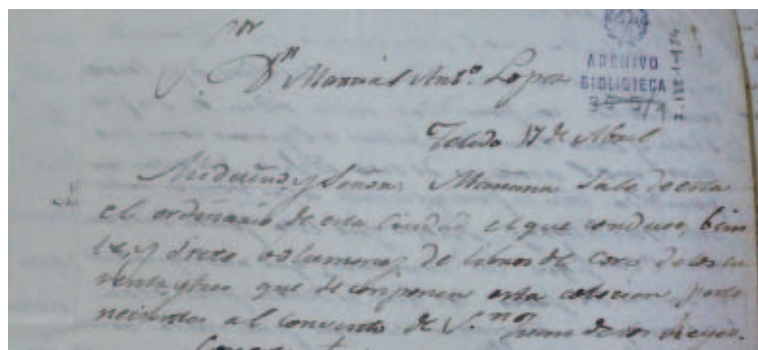 S.or D.n Marcial Ant.o Lopez
ARCHIVO
BIBLIOTECA
Toledo 17 de Abril
Mi dueño y Señor: Mañana sale de esta
el ordinario de esta Ciudad el que conduce, bein
te, y siete volumenes de libros de Coro de los cu
renta y tres que se componen esta colecion perte
necientes al convento de S.n Juan de los Reyes.